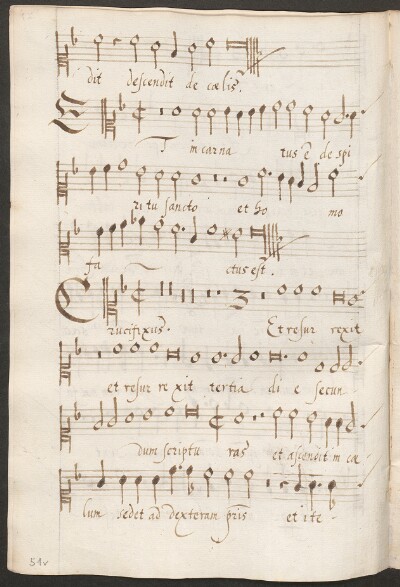 dit descendit de cœlis.
ET incarna tus ē de spi
ritu sancto et ho mo
fa ctus est.
Crucifixus. Et resur rexit
et resur re xit tertia di e secun
dum scriptu ras et ascendit in cœ
lum sedet ad dexteram pris et ite
51v